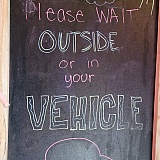 Please WAIT
OUTSIDE
or in
your
VEHICLE